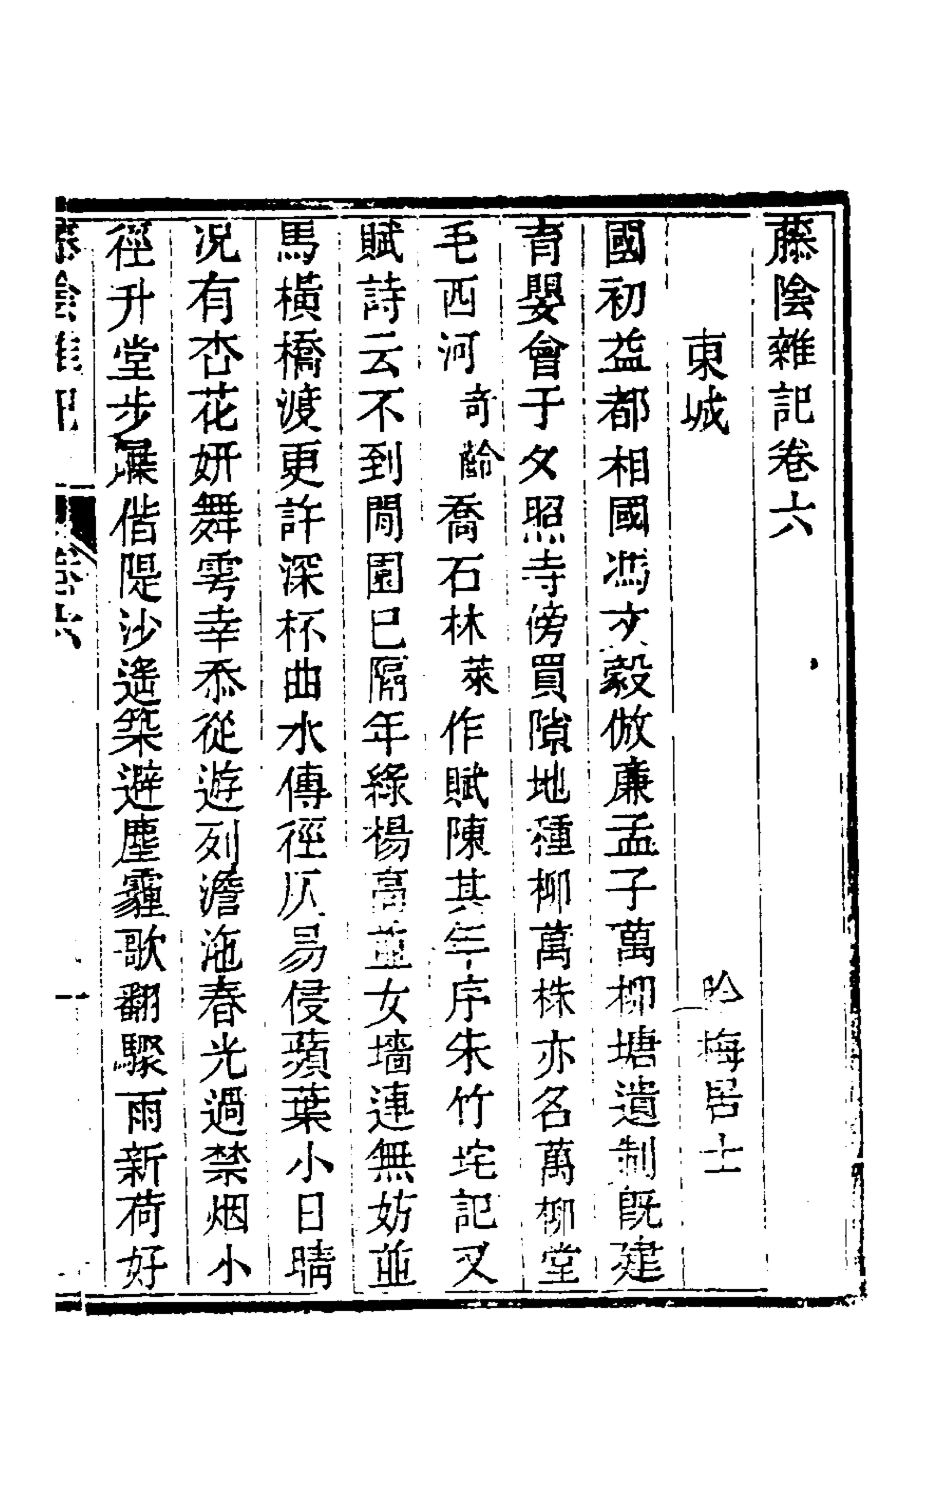 藤陰雜記卷六
東城　吟梅居士
國初益都相國馮文毅倣廉孟子萬柳塘遺制既建
育嬰會于夕照寺傍買隙地種柳萬株亦名萬柳堂
毛西河奇齡喬石林萊作賦陳其年序朱竹垞記又
賦詩云不到閒園已隔年綠楊高並女墻連無妨並
馬橫橋渡更許深杯曲水傳徑仄易侵蘋葉小日晴
况有杏花妍舞雩幸忝從遊列澹沲春光過禁烟小
徑升堂步屧偕隄沙遙築避塵霾歌翻驟雨新荷好
藤陰雜記　卷六　一